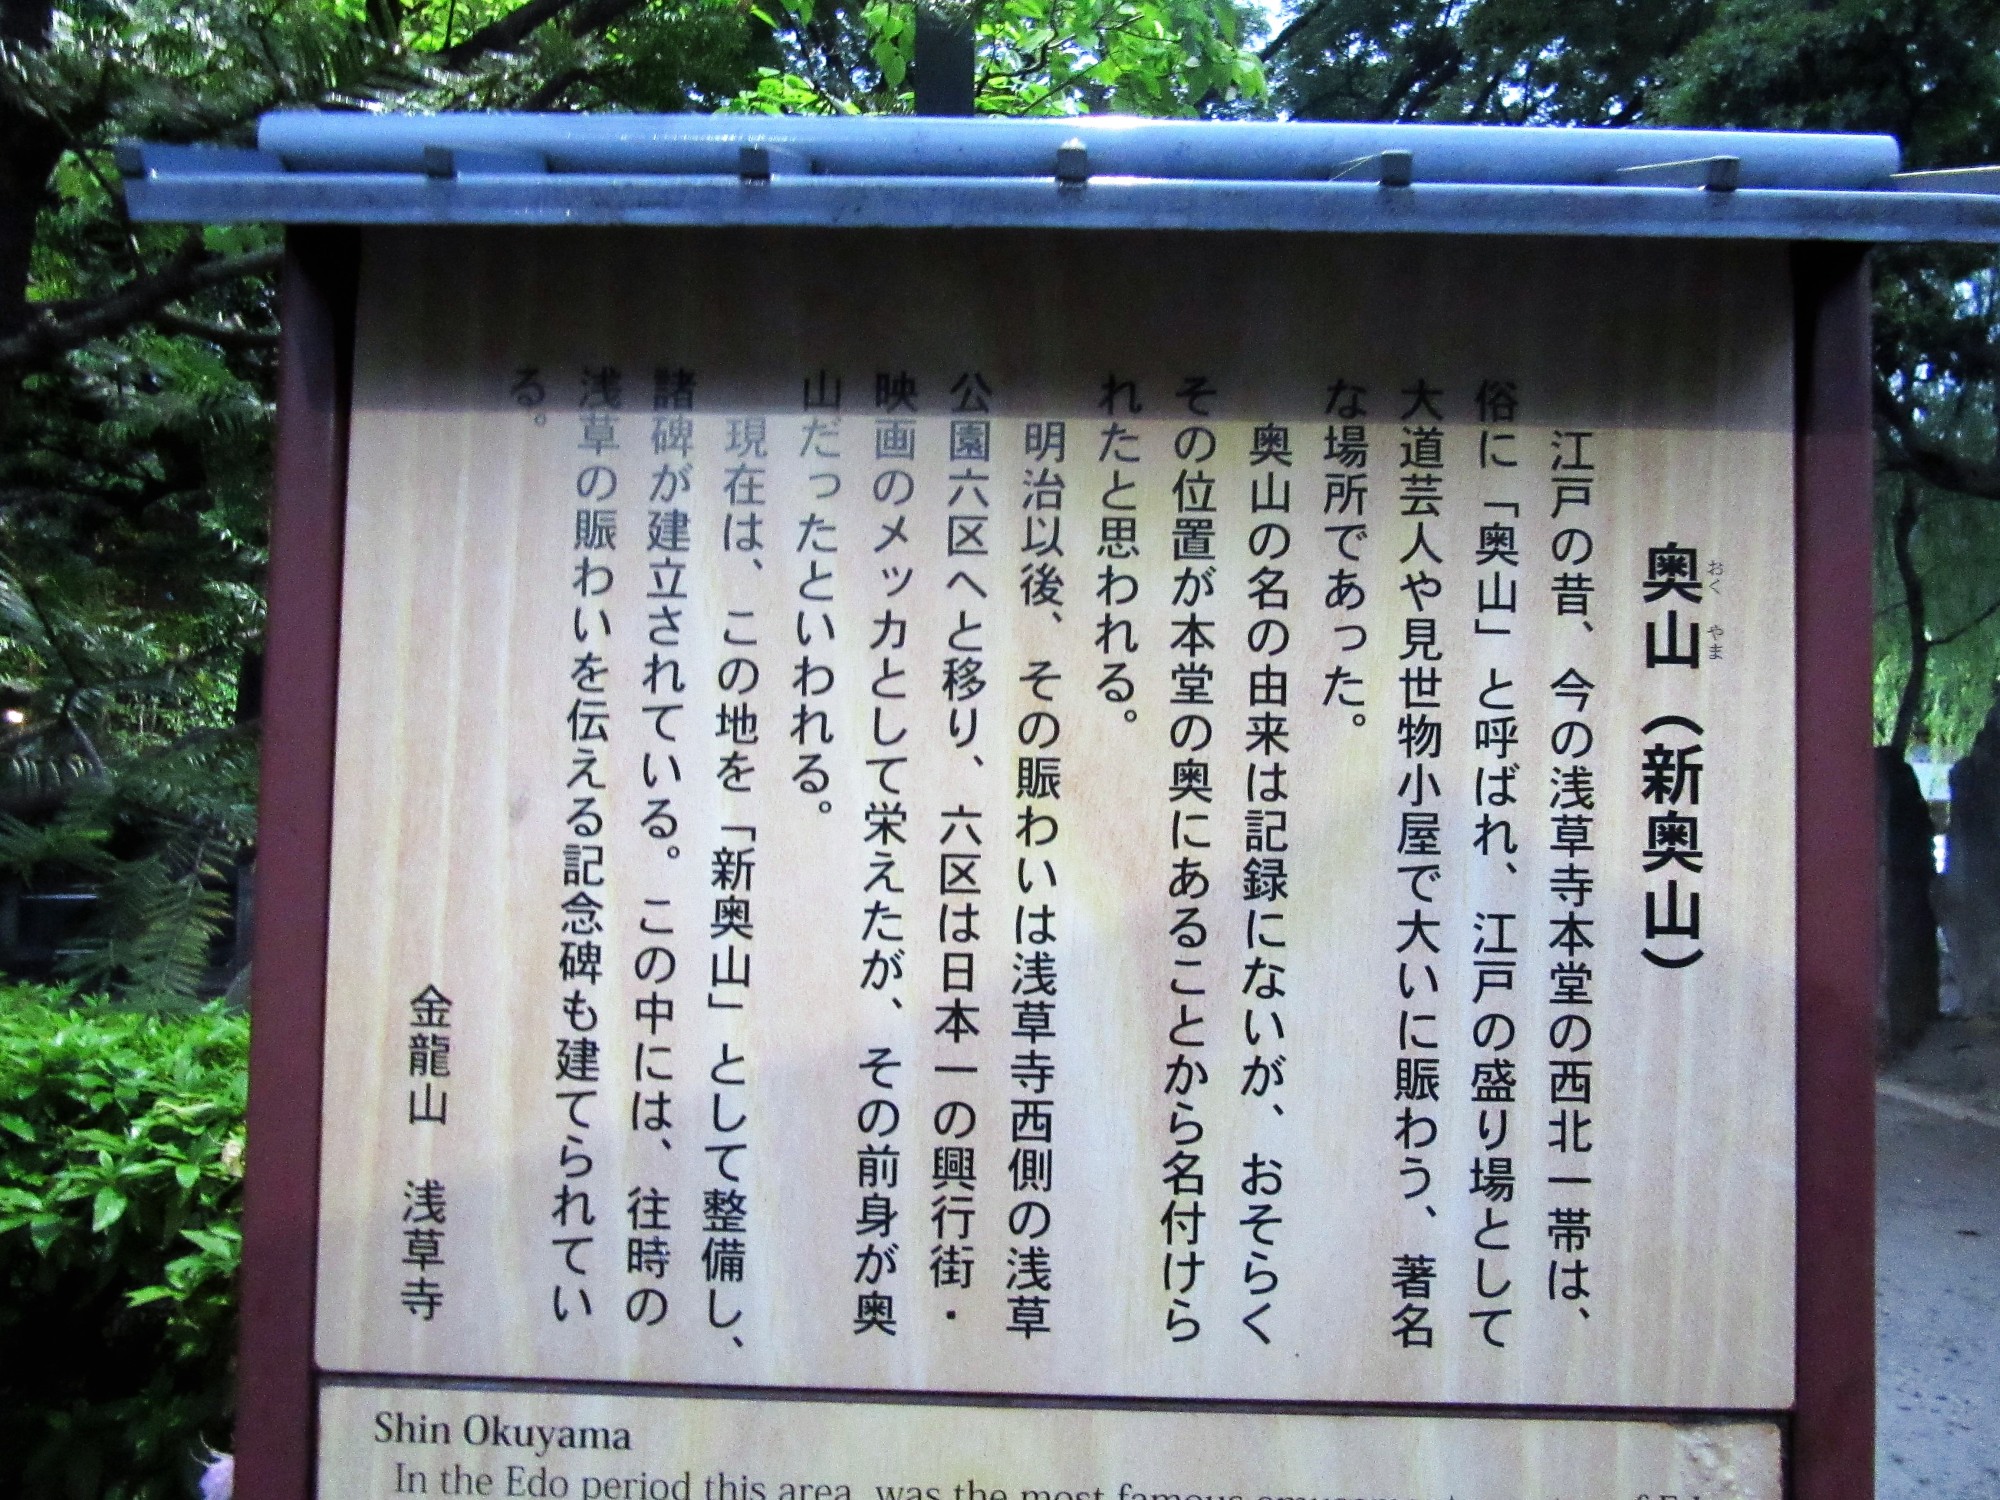 奥山（新奥山）
おく やま
江戸の昔、今の浅草寺本堂の西北一帯は、
俗に「奥山」と呼ばれ、江戸の盛り場として
大道芸人や見世物小屋で大いに賑わう、著名
な場所であった。
奥山の名の由来は記録にないが、おそらく
その位置が本堂の奥にあることから名付けら
れたと思われる。
明治以後、その賑わいは浅草寺西側の浅草
公園六区へと移り、六区は日本一の興行街・
映画のメッカとして栄えたが、その前身が奥
山だったといわれる。
現在は、この地を「新奥山」として整備し、
諸碑が建立されている。この中には、往時の
浅草の賑わいを伝える記念碑も建てられてい
る。
金龍山　浅草寺
Shin Okuyama
In the Edo period this area, was the most famous